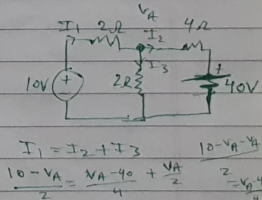 V_A
I_1 2Ω 4Ω
I_2
I_3
10V + 2Ω 40V
I_1 = I_2 + I_3
(10 - V_A)/2 = (V_A - 40)/4 + V_A/2
(10 - V_A - V_A)/2